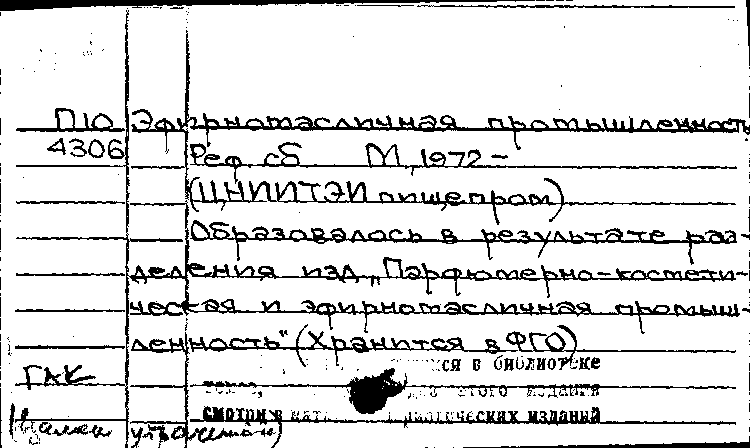 П10 Эфирномасличная промышленность
4306 Реф. сб. М., 1972 –
(ЦНИИТЭИпищепром)
Образовалось в результате раз-
деления изд. „Парфюмерно-космети-
ческая и эфирномасличная промыш-
ленность" (Хранится в ФГО)
ся в библиотеке
ГАК
этого издания
смотри в изданий